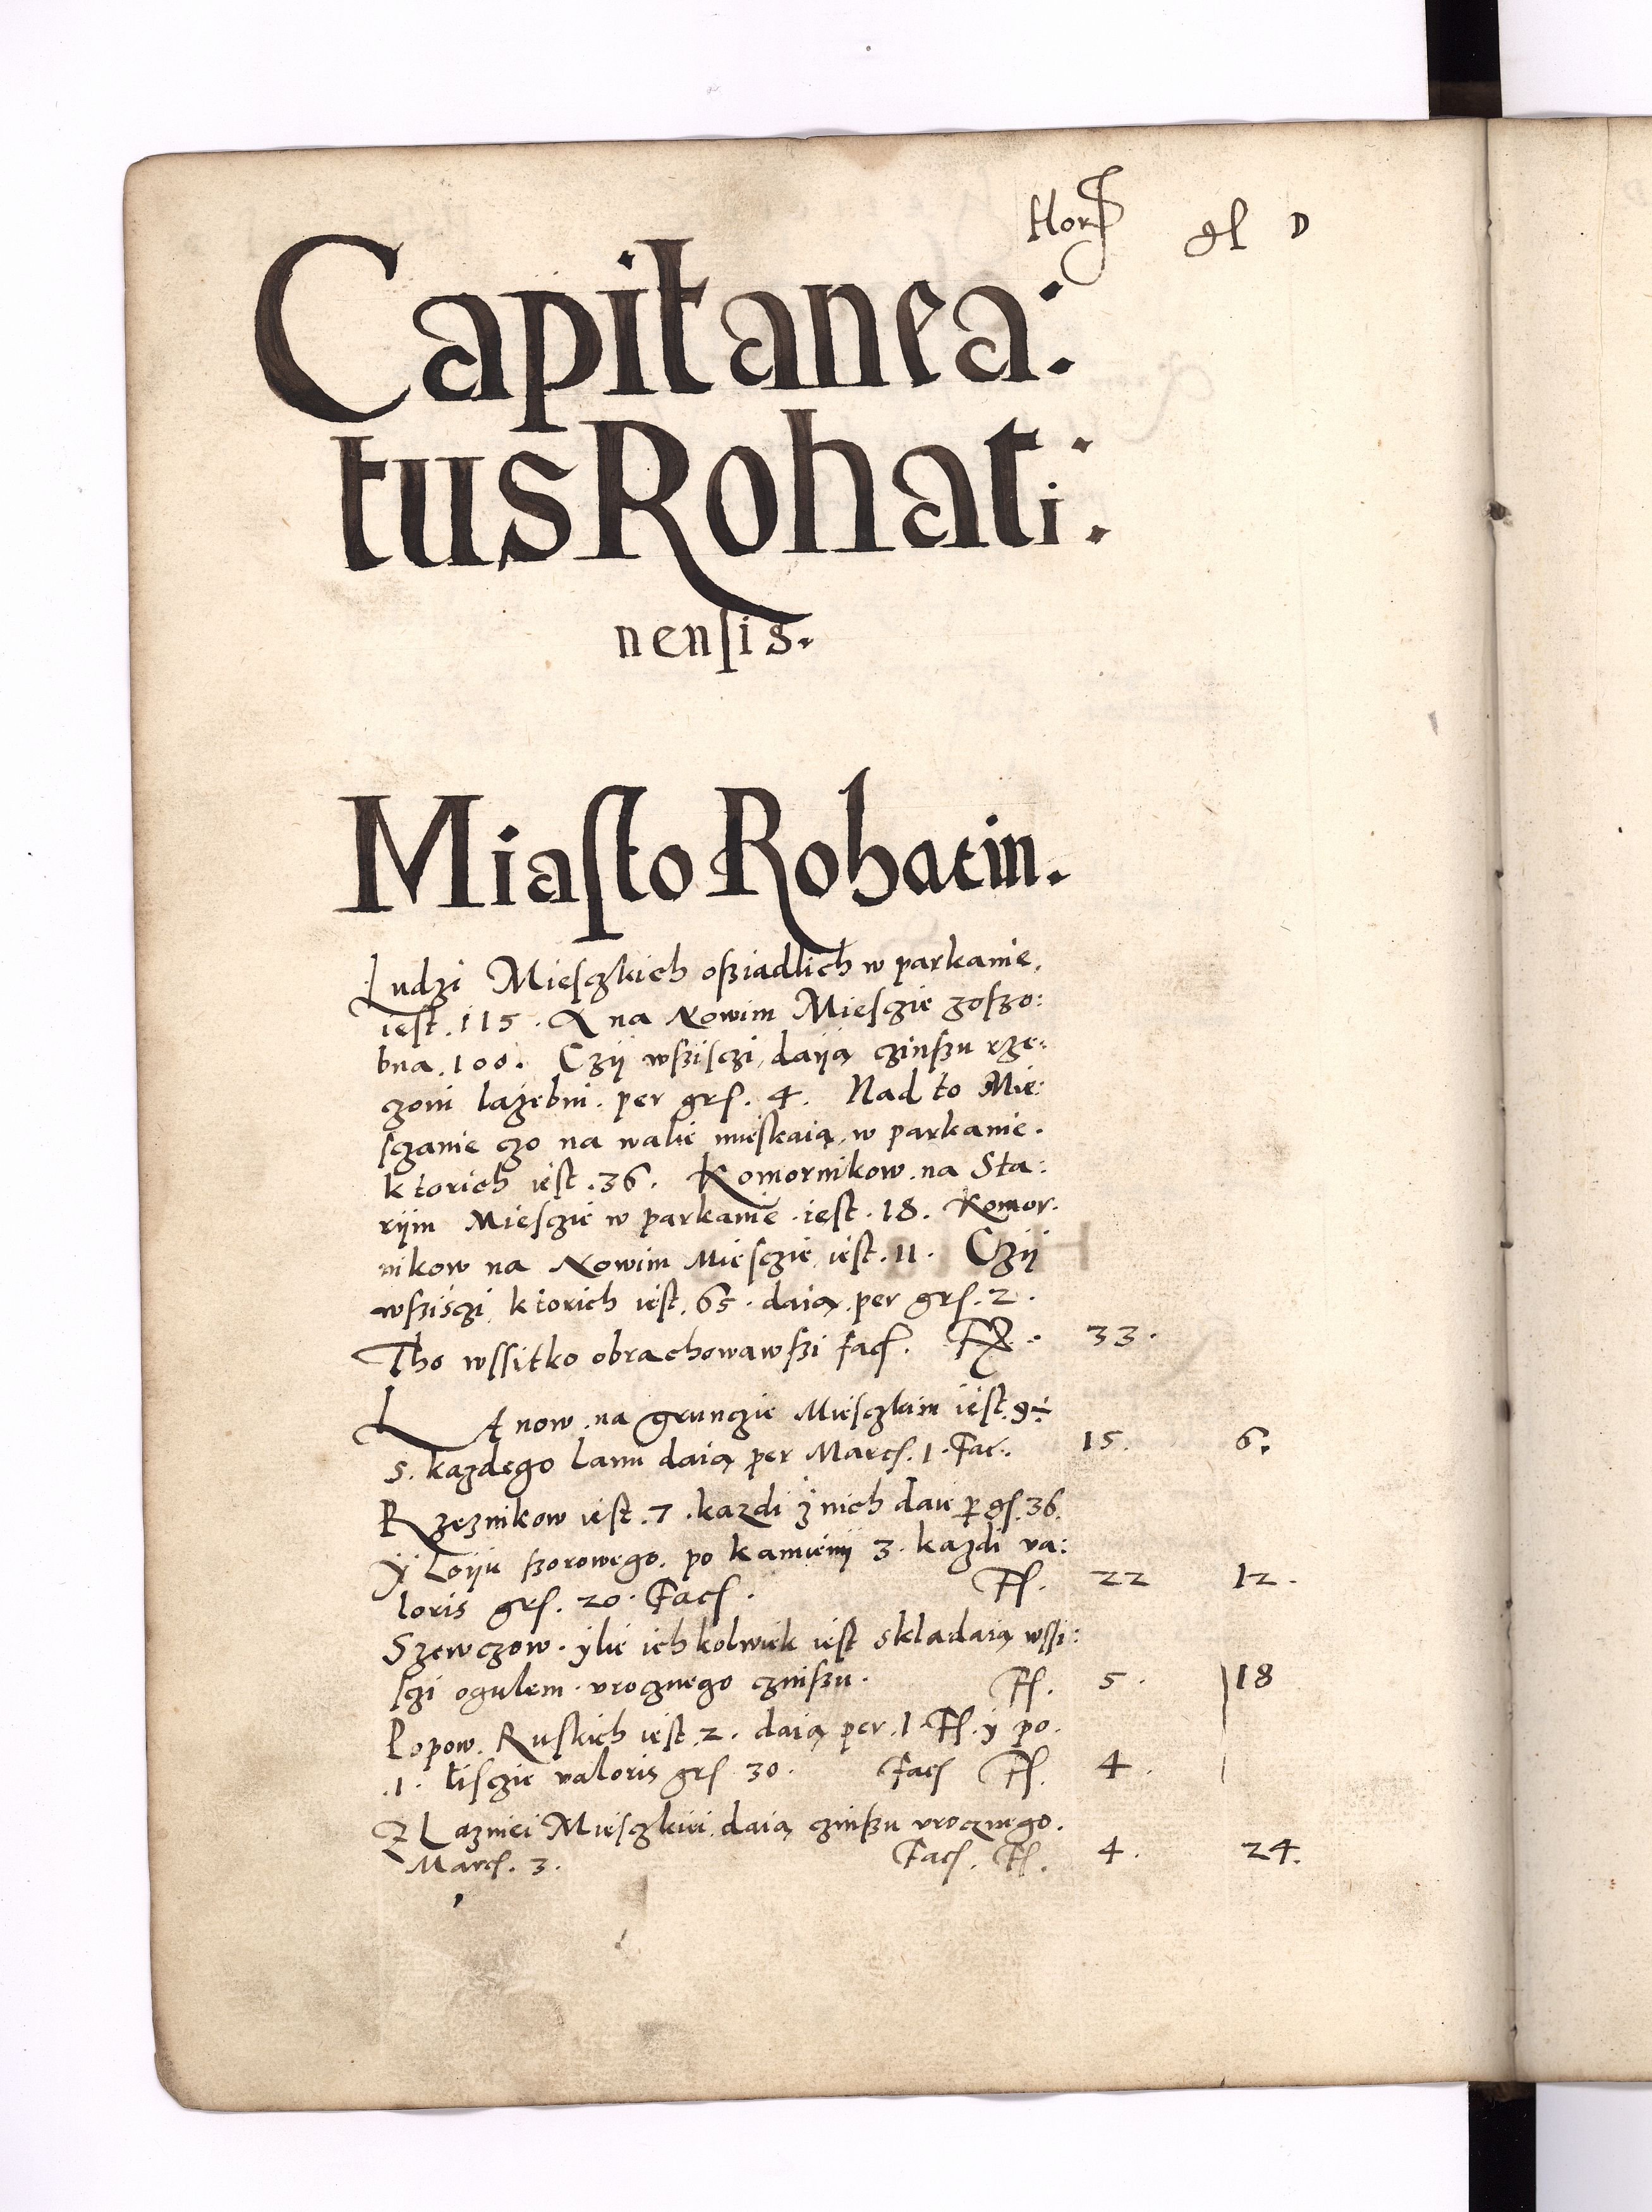 Flor gl D
Capitanea:
tus Rohati:
nensis.
Miasto Rohatin.
Ludzi Miesczkich oßiadlich w parkanie,
iest . 115 . A na Nowim Miesczie zoszo:
bna . 100 . Czij wßisczi, daija czinßu rze:
zoni lazebni . per grs. 4. Nad to Mie:
sczanie czo na walie mieskaią, w parkanie.
ktorich iest . 36 . Komornikow . na Sta:
rijm Miesczie w parkanie . iest . 18 . Komor.
nikow na Nowim Miesczie, iest . 11 . Czij
wßisczi, ktorich iest . 65 . daią . per grs. 2 .
Tho wssitko obrachowawßi facs. Fl. 33 .
Łanow . na grunczie Miesczkim iest . 9½
s. kazdego lanu daią per Marcs. 1 . Fac. 15 . 6 .
Rzeznikow iest . 7 . kazdi z nich daie per gs. 36.
Y Loiju szorowego . po kamienij 3 . kazdi va:
loris grs. 20 . Facs. Fl. 22 12 .
Szewczow . ylie ichkolwiek iest skladaią wssi:
sczi ogulem . vrocznego czinßu . Fl. 5 . 18
Popow . Ruskich iest . 2 . daią per . 1 . Fl. y po .
. 1 . lisczie valoris grs 30 . Facs Fl. 4 .
Z Laznici Miesczkiei, daią czinßu vrocznego .
Marcs. 3 . Facs. Fl. 4 . 24 .